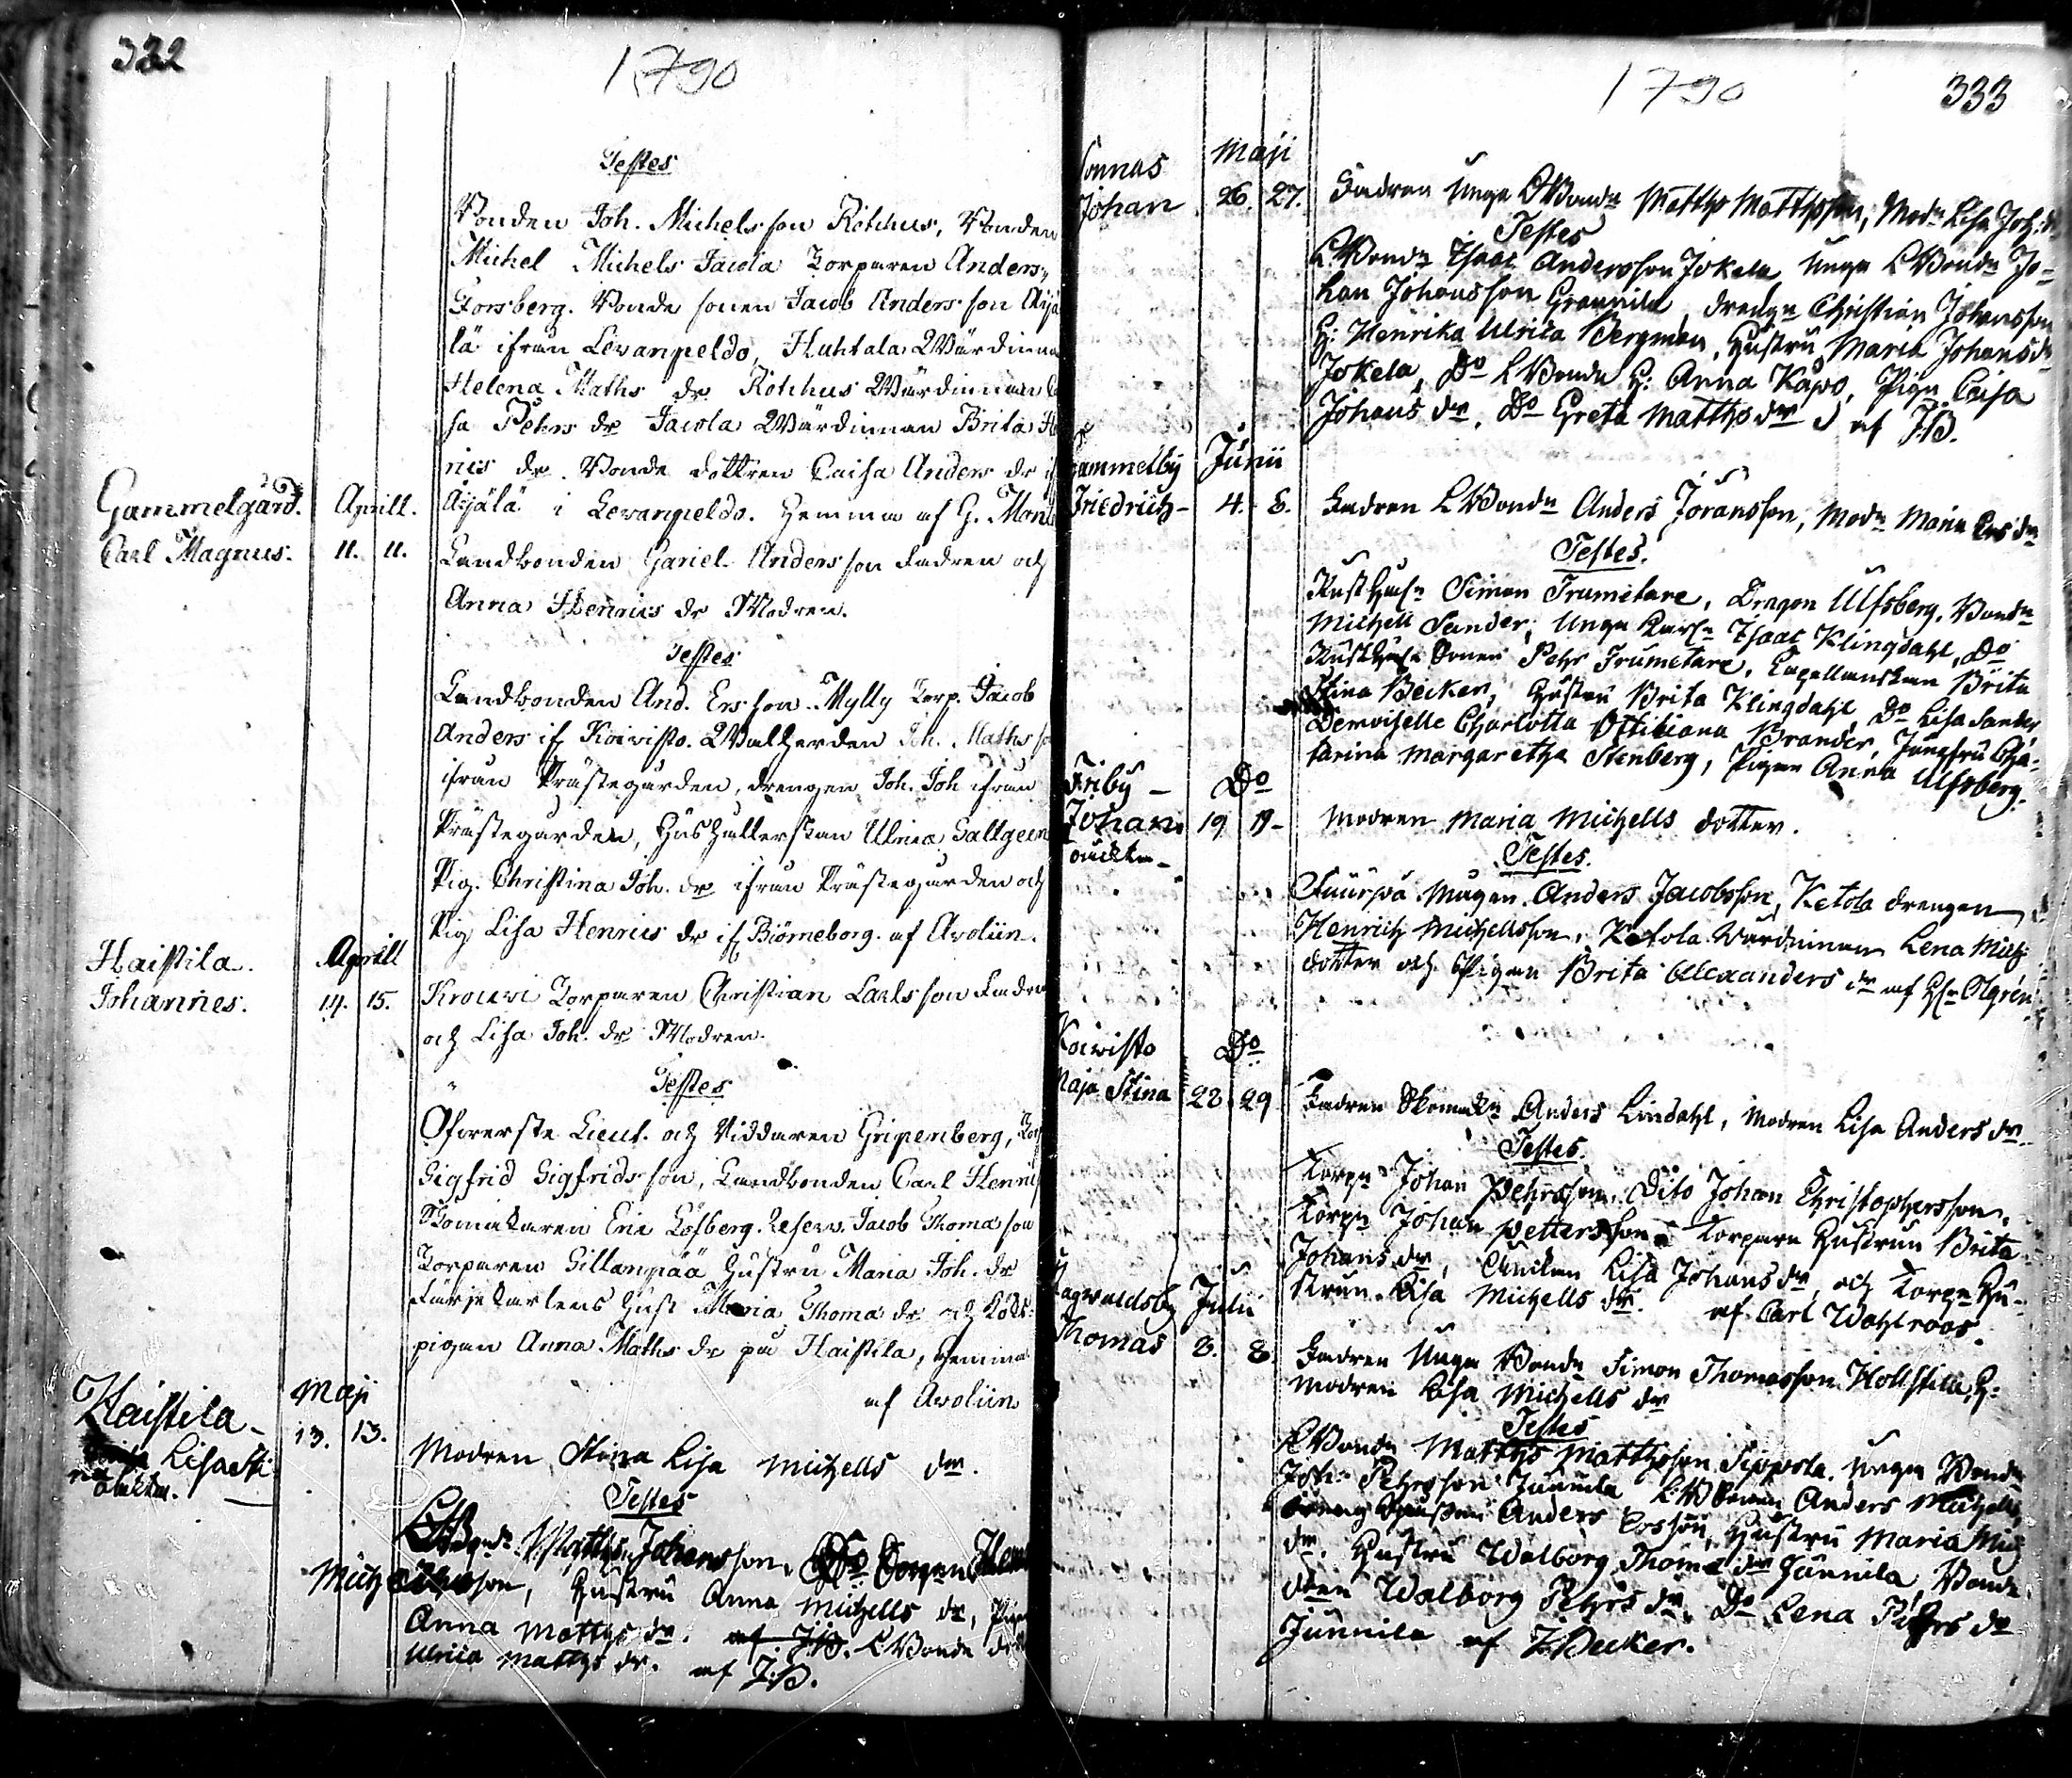 332
1790
Testes
Bonden Joh. Michelsson Röthus, Bonden
Michel Michels Jacola Torparen Anders
Forsberg. Bonde sonen Jacob Andersson Äijä
lä ifrån Levanpeldo, Huhtala Wärdinna
Helena Maths dr Röthus Wärdinnan
sa Pehrs dr Jacola Wärdinnan Brita
rics dr. Bonde dottren Caisa Anders dr
Äijälä i Levanpeldo. Hemma af G.
Gammelgård. Aprill.
Carl Magnus. 11. 11. Landbonden Gariel Andersson Fadren och
Anna Henrics dr Modren.
Testes
Landbonden And. Ersson Mylly Torp. Jacob
Anders if Koivisto. Wallherden Joh. Maths
ifrån Prästegården, drengen Joh. Joh ifrån
Prästegården, Hushållerskan Ulrica
Pig. Christina Joh. dr ifrån Prästegården och
Pig Lisa Henrics dr if Biörneborg. af Avolün.
Haistila. Aprill
Johannes. 14. 15. Krouvi Torparen Christian Carlsson Fadren
och Lisa Joh. dr Modren.
Testes
Öfwerste Lieut. och Riddaren Gripenberg,
Sigfrid Sigfridsson, Landbonden Carl
Skomakaren Eric Löfberg. Reserv. Jacob Thomason
Torparen Sillanpää Hustru Maria Joh. dr
Färjekarlens Hust Maria Thoma dr och
pigan Anna Maths dr på Haistila, hemma
af Avolün
Haistila Maji
Lisa Sti 13. 13. Modren Stina Lisa Michells dr.
na
oäckta.
Testes
LBond Matths Johansson, Do
Mich son, Hustru Anna Michells dr,
Anna Matths dr. af J.B. LBonde
Ulrica Matths dr. af J.B.
1790
333
Sonnas Maji
Johan 26. 27. Fadren Unga LBondn Matths Matthsson, Modn Lisa Joh: dr
Testes
LBondn Isaac Andersson Jokela unga LBondn Jo-
han Johansson Grannila, drengn Christian Johansson
H: Henrika Ulrica Bergman, Hustru Maria Johans dr
Jokela, Do LBonde H: Anna Kaso, Pign Caisa
Johans dr. Do Greta Matths dr af J.B.
Gammelby Junii
Friedrich 4. 6. Fadren LBondn Anders Jöransson, Modn Maria Ers dr
Testes.
Rusthåln Simon Trumetare, Dragon Ulfsberg, Bondn
Michell Sander, Unga Karln Isaac Klingdahl, Do
Rusthåln Sonen Pehr Trumetare, Capellanskan Brita
Stina Becker, Hustru Brita Klingdahl, Do Lisa Sander
Demoiselle Charlotta Ottiliana Brander, Jungfru Cha-
tarina Margaretha Stenberg, Pigan Anna Ulfsberg.
Friby Do
Johan 19 19 Modren Maria Michells dotter.
oäckta
Testes.
Anders Jacobsson, Ketola drengen
Henrich Michellsson, Ketola Wärdinnan Lena Mich
dotter och Pigan Brita Alexanders dr af Hr Olgren
Koivisto Do
Maja Stina 28. 29 Fadren Skomakn Anders Lindahl, Modren Lisa Anders dr.
Testes.
Torpn Johan Pehrsson, Dito Johan Christophersson,
Torpn Johan Pettersson, Torpare Hustrun Brita
Johans dr, Enckan Lisa Johans dr, och Torpn Hu-
strun Lisa Michells dr. af Carl Wahlroos.
Ragwaldsby Julii
Thomas 8. 8. Fadren Unga Bondn Simon Thomasson Hollstila H:
Modren Lisa Michells dr
Testes
LBondn Matths Matthsson Seppola, unga Bondn
Joh: Pehrsson Junnila LBSonen Anders Michells
Anders Ersson, Hustru Maria Mich
dr. Hustru Walborg Thoma dr Junnila, Bonde
dren Walborg Pehrs dr, Do Lena Pehrs dr
Junnila af J. Becker.